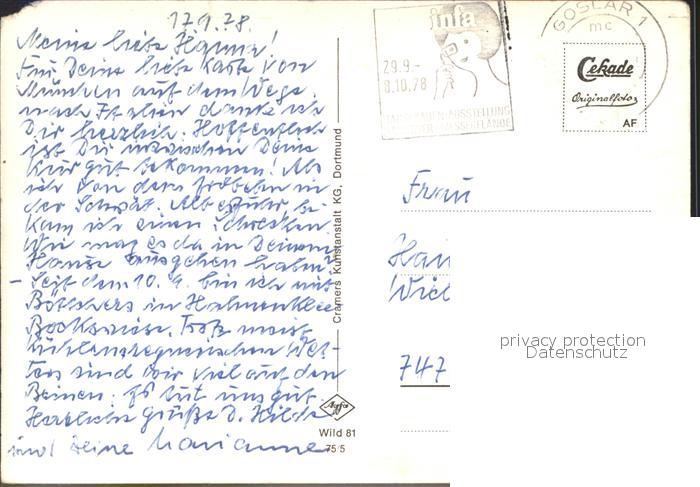 17.9.78.
Meine liebe Hanna!
Für Deine liebe Karte von
München auf dem Wege
nach Italien danke ich
Dir herzlich. Hoffentlich
ist Dir inzwischen Deine
Kur gut bekommen! Als
ich von dem Erdbeben in
der Schwäb. Alb erfuhr be-
kam ich einen Schrecken.
Wie mag es da in Deinem
Hause ausgesehen haben?
– Seit dem 10.9. bin ich mit
Böttchers in Hahnenklee
Bockswiese. Trotz meist
kühlem regnerischen Wet-
ters sind wir viel auf den
Beinen. Es tut uns gut.
Herzliche Grüße D. Hilde
und Deine Marianne
Cramers Kunstanstalt KG, Dortmund
Agfa
Wild 81
75/5
infa
29.9.-
8.10.78
GOSLAR 1
mc
Cekade
Originalfoto
AF
Frau
747
privacy protection
Datenschutz